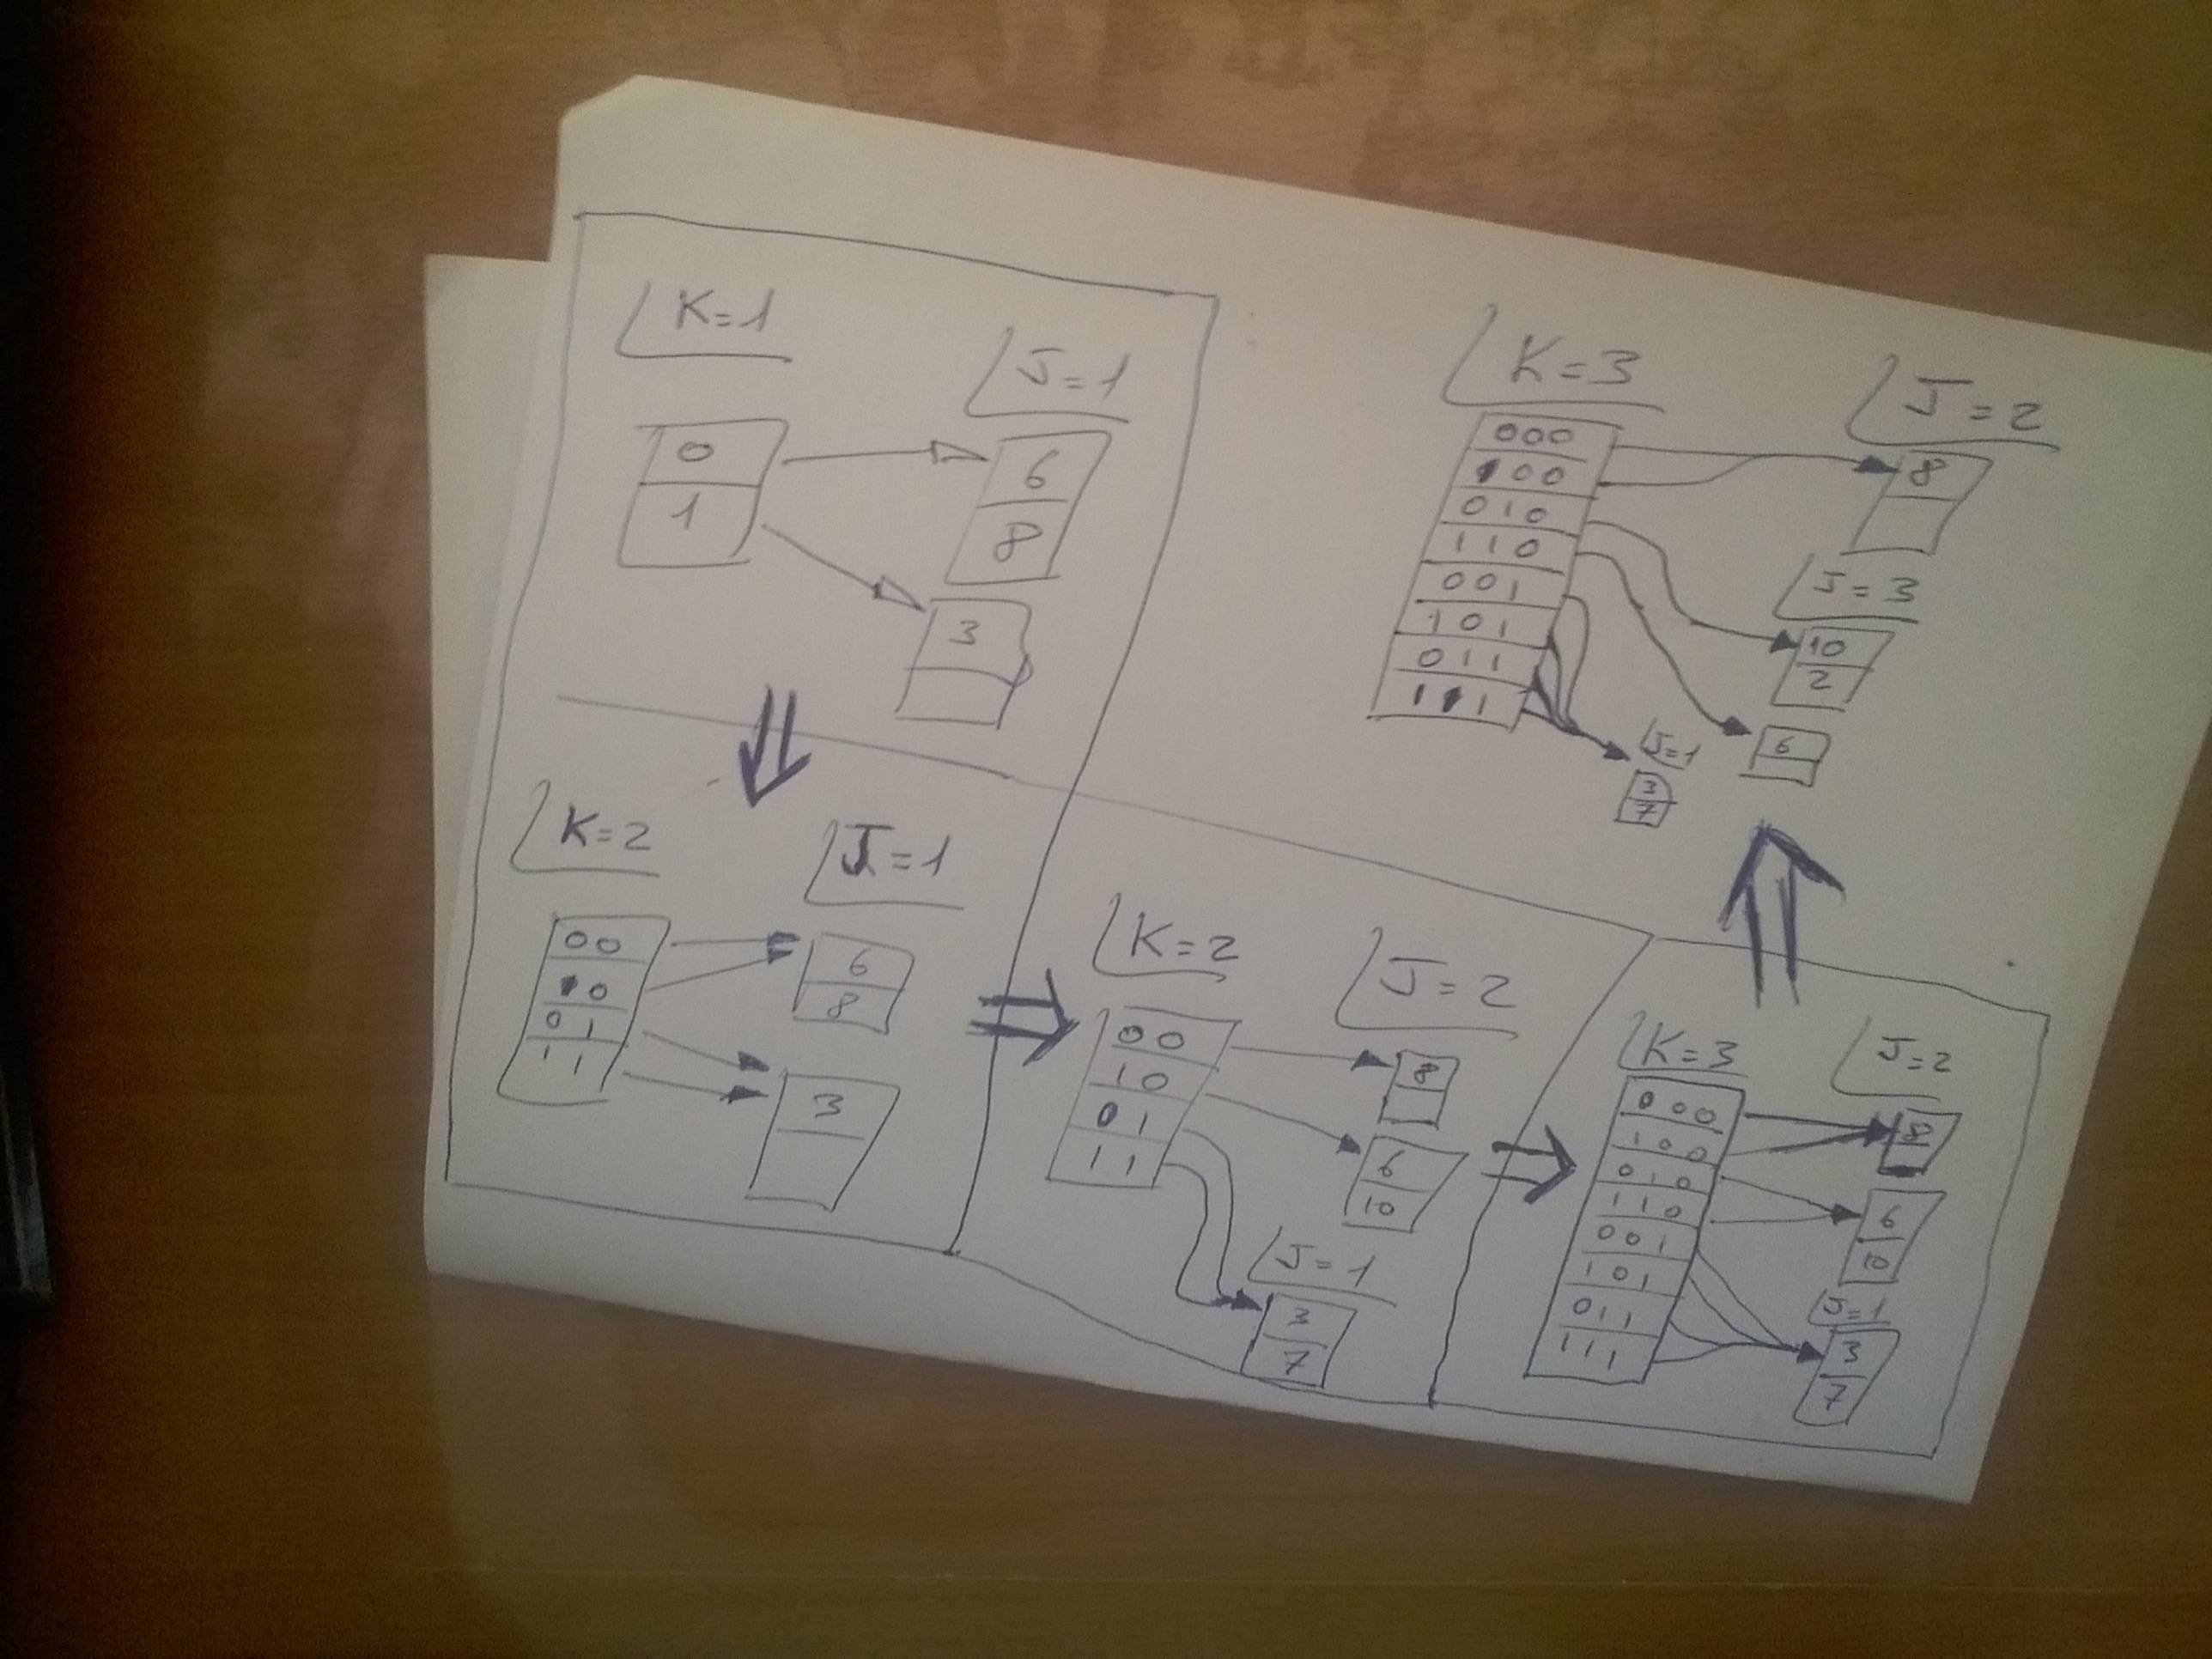 K=1
J=1
0
1
6
8
3
K=2
J=1
00
10
01
11
6
8
3
K=2
J=2
00
10
01
11
8
6
10
J=1
3
7
K=3
J=2
000
100
010
110
001
101
011
111
8
6
10
J=1
3
7
K=3
J=2
000
100
010
110
001
101
011
111
8
J=3
10
2
6
J=1
3
7